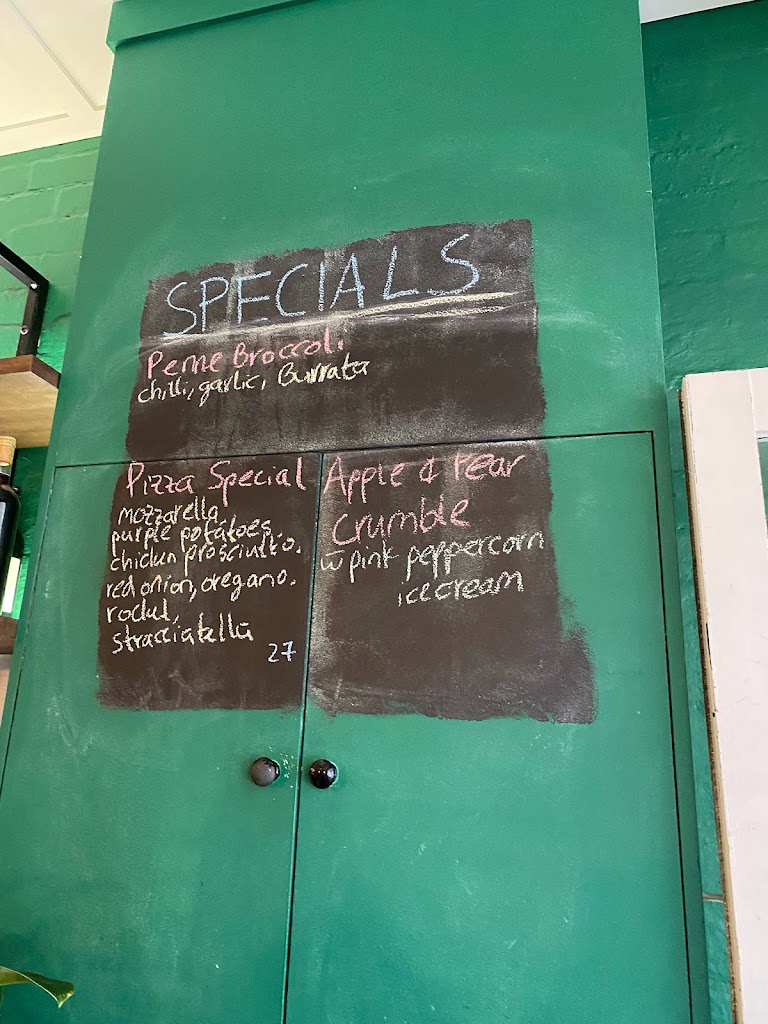 SPECIALS
Penne Broccoli
chilli, garlic, Burrata
Pizza Special
mozzarella,
purple potatoes,
chicken prosciutto,
red onion, oregano.
rocket,
stracciatella
27
Apple & Pear
crumble
w pink peppercorn
icecream